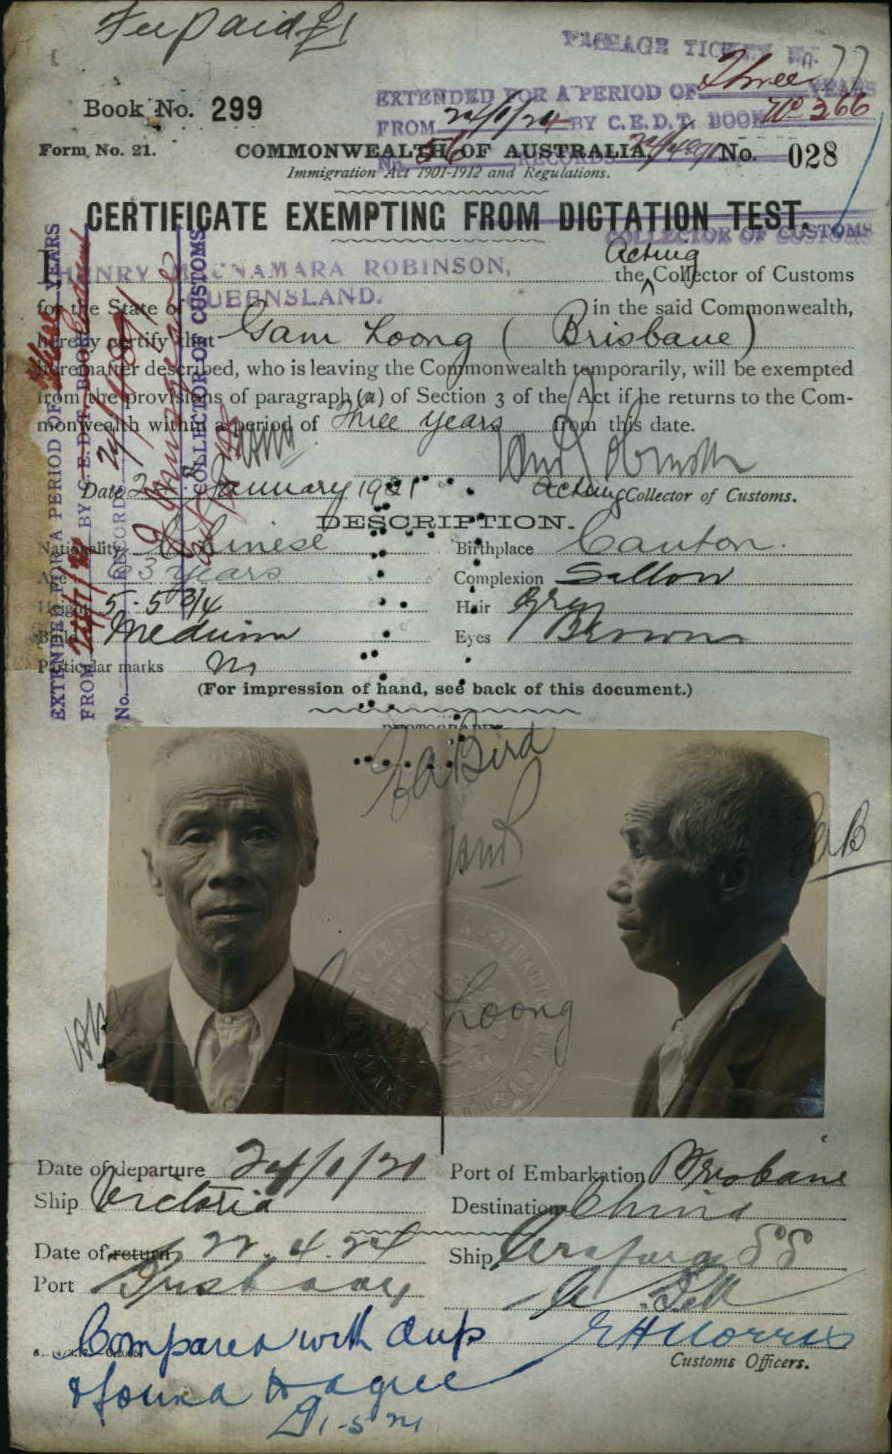 Fee paid £1
PASSAGE TICKET No. 77
EXTENDED FOR A PERIOD OF Three YEARS
Book No. 299
FROM 24/1/24 BY C.E.D.T. BOOK No 366
No. 56 RECORDS
Form No. 21. COMMONWEALTH OF AUSTRALIA. No. 028
Immigration Act 1901-1912 and Regulations.
CERTIFICATE EXEMPTING FROM DICTATION TEST.
COLLECTOR OF CUSTOMS
I HENRY MACNAMARA ROBINSON, the Acting Collector of Customs
for the State of QUEENSLAND. in the said Commonwealth,
hereby certify that Gam Loong (Brisbane)
hereinafter described, who is leaving the Commonwealth temporarily, will be exempted
from the provisions of paragraph (a) of Section 3 of the Act if he returns to the Com-
monwealth within a period of Three years from this date.
Date January 1921 Acting Collector of Customs.
EXTENDED FOR A PERIOD OF YEARS
FROM BY C.E.D.T. BOOK
No. RECORDS
COLLECTOR OF CUSTOMS
DESCRIPTION.
Nationality Chinese Birthplace Canton.
Age 63 years Complexion Sallow
Height 5-5 3/4 Hair Grey
Build Medium Eyes Brown
Particular marks No
(For impression of hand, see back of this document.)
PHOTOGRAPHS
Bird
HMR
Loong
Date of departure 24/1/21 Port of Embarkation Brisbane
Ship Victoria Destination China
Date of return 22.4.24 Ship Arafura SS
Port Thursday
Compared with dup
& found to agree
1-5-24
Customs Officers.